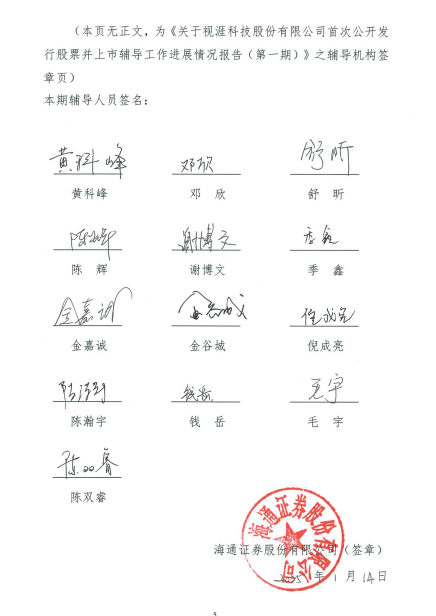 （本页无正文，为《关于视涯科技股份有限公司首次公开发
行股票并上市辅导工作进展情况报告（第一期）》之辅导机构签
章页）
本期辅导人员签名：
黄科峰 邓欣 舒昕
黄科峰 邓 欣 舒 昕
陈辉 谢博文 季鑫
陈 辉 谢博文 季 鑫
金嘉诚 金谷城 倪成亮
金嘉诚 金谷城 倪成亮
陈瀚宇 钱岳 毛宇
陈瀚宇 钱 岳 毛 宇
陈双睿
陈双睿
海通证券股份有限公司
海通证券股份有限公司（签章）
2025年1月14日
5